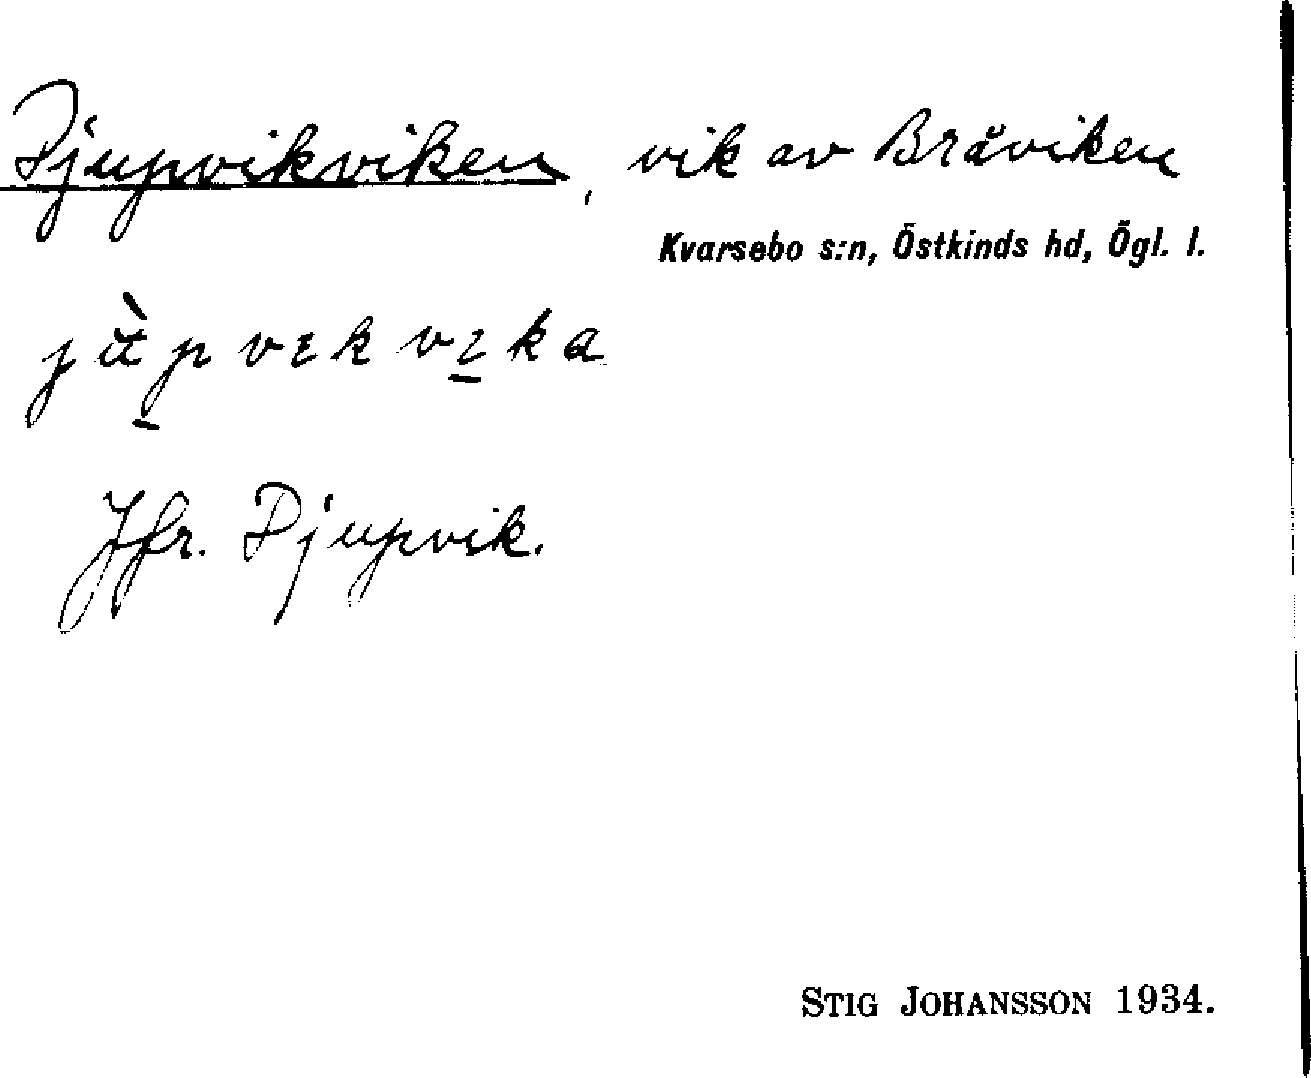 Djupvikviken, vik av Bråviken
Kvarsebo s:n, Östkinds hd, Ögl. l.
Jfr. Djupvik.
STIG JOHANSSON 1934.